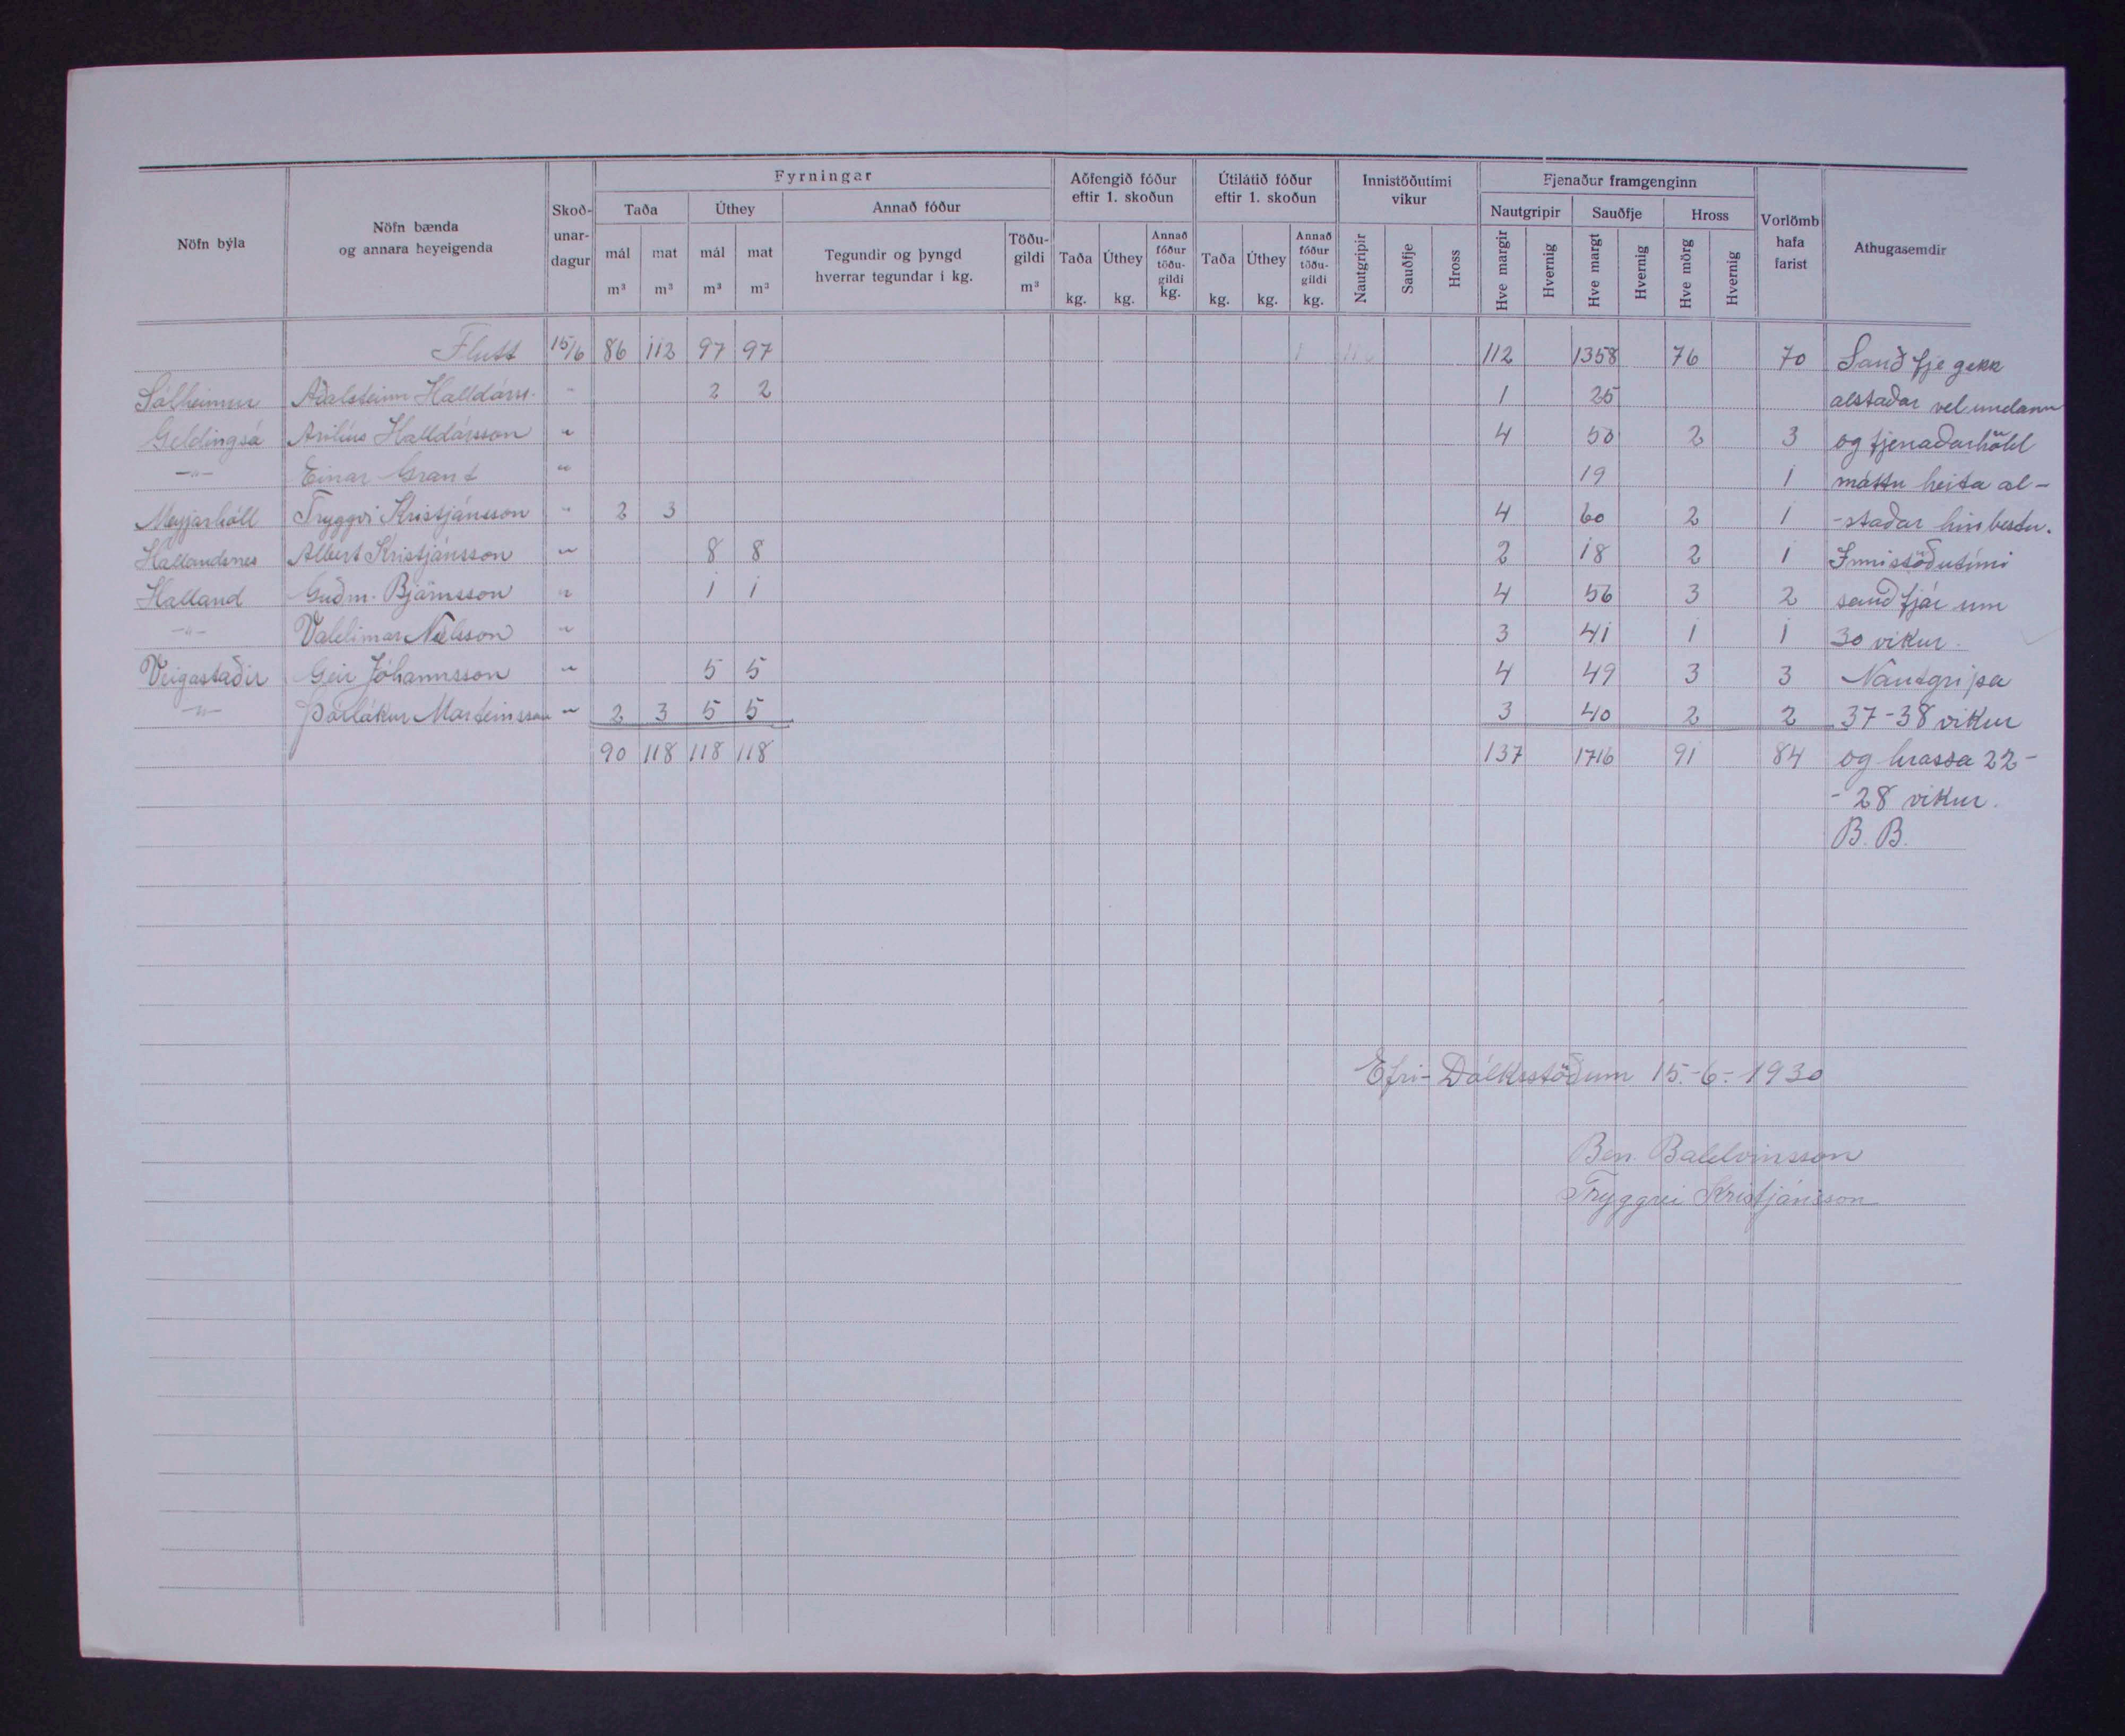 Nöfn býla Nöfn bænda og annara heyeigenda Skoð-unar-dagur Fyrningar Aðfengið fóður eftir 1. skoðun Útilátið fóður eftir 1. skoðun Innistöðutimi vikur Fjenaður framgenginn Vorlömb hafa farist Athugasemdir
Taða Úthey Annað fóður Nautgripir Sauðfje Hross
mál m³ mat m³ mál m³ mat m³ Tegundir og þyngd hverrar tegundar í kg. Töðu-gildi m³ Taða kg. Úthey kg. Annað fóður töðu-gildi kg. Taða kg. Úthey kg. Annað fóður töðu-gildi kg. Nautgripir Sauðfje Hross Hve margir Hvernig Hve margt Hvernig Hve mörg Hvernig
Flutt 15/6 86 112 97 97 112 1358 76 70 Sauðfje gekk
Sólheimar Aðalsteinn Halldórss. - 2 2 1 25 alstaðar vel undann
Geldingsá Arilíus Halldórsson " 4 50 2 3 og fjenaðarhöld
-"- Einar Grant " 19 1 máttu heita al-
Meyjarhóll Tryggvi Kristjánsson " 2 3 4 60 2 1 -staðar hin bestu.
Hallandsnes Albert Kristjánsson " 8 8 2 18 2 1 Innistöðutími
Halland Guðm. Björnsson " 1 1 4 56 3 2 sauðfjár um
-"- Valdimar Nielsson " 3 41 1 1 30 vikur.
Veigastaðir Geir Jóhannsson " 5 5 4 49 3 3 Nautgripa
-"- Þorlákur Marteinsson " 2 3 5 5 3 40 2 2 37-38 vikur
90 118 118 118 137 1716 91 84 og hrossa 22-
- 28 vikur.
B. B.
Efri-Dálksstöðum 15.-6.-1930
Ben. Baldvinsson
Tryggvi Kristjánsson